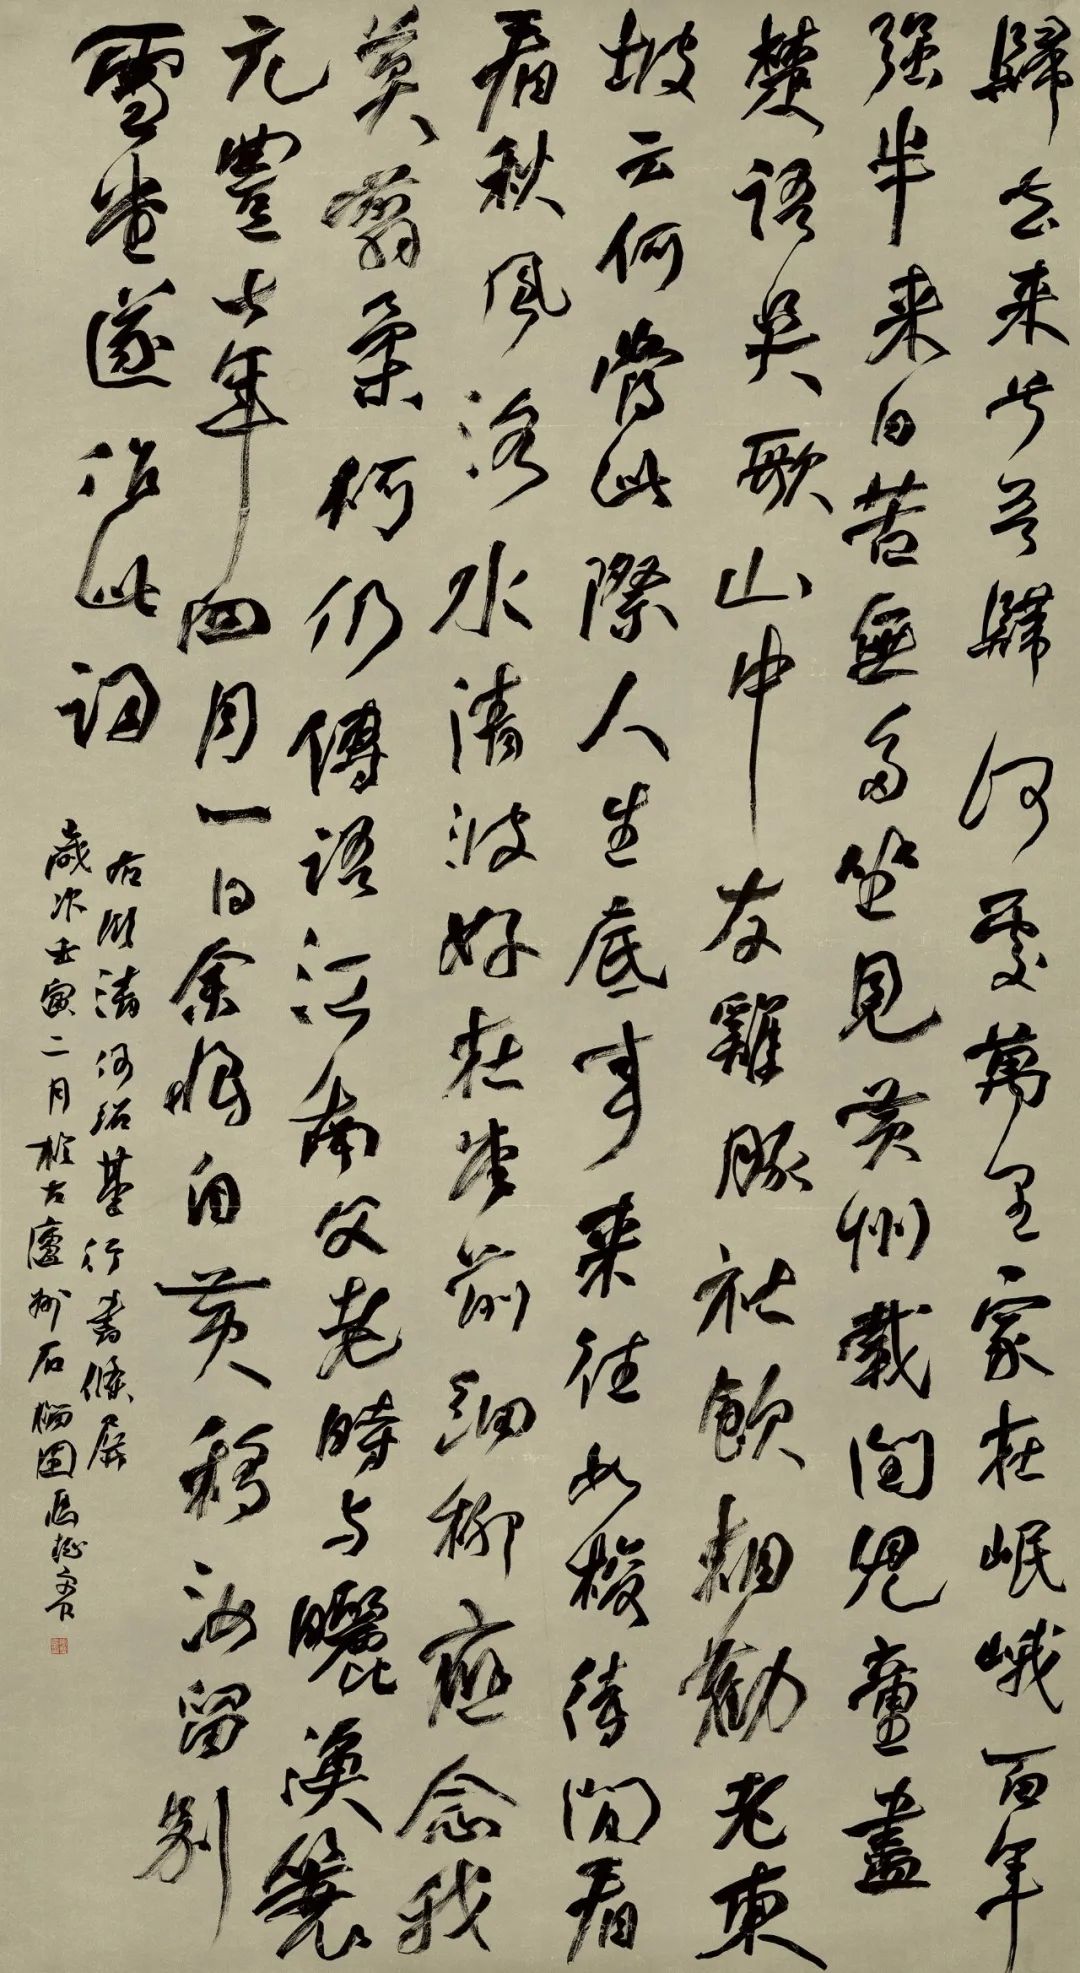 歸去来兮吾歸何處萬里家在岷峨百年
强半来日苦無多坐見黄州載閏兒童盡
楚語吴歌山中友雞豚社飲相勸老東
坡云何當此際人生底事来往如梭待閒看
看秋風洛水清波好在堂前細柳應念我
莫翦柔柯仍傳語江南父老時与曬漁蓑
元豐七年四月一日余將自黄移汝留别
雪堂遂作此詞
右臨清何紹基行書條屏
歲次壬寅二月於古廬州石榴園